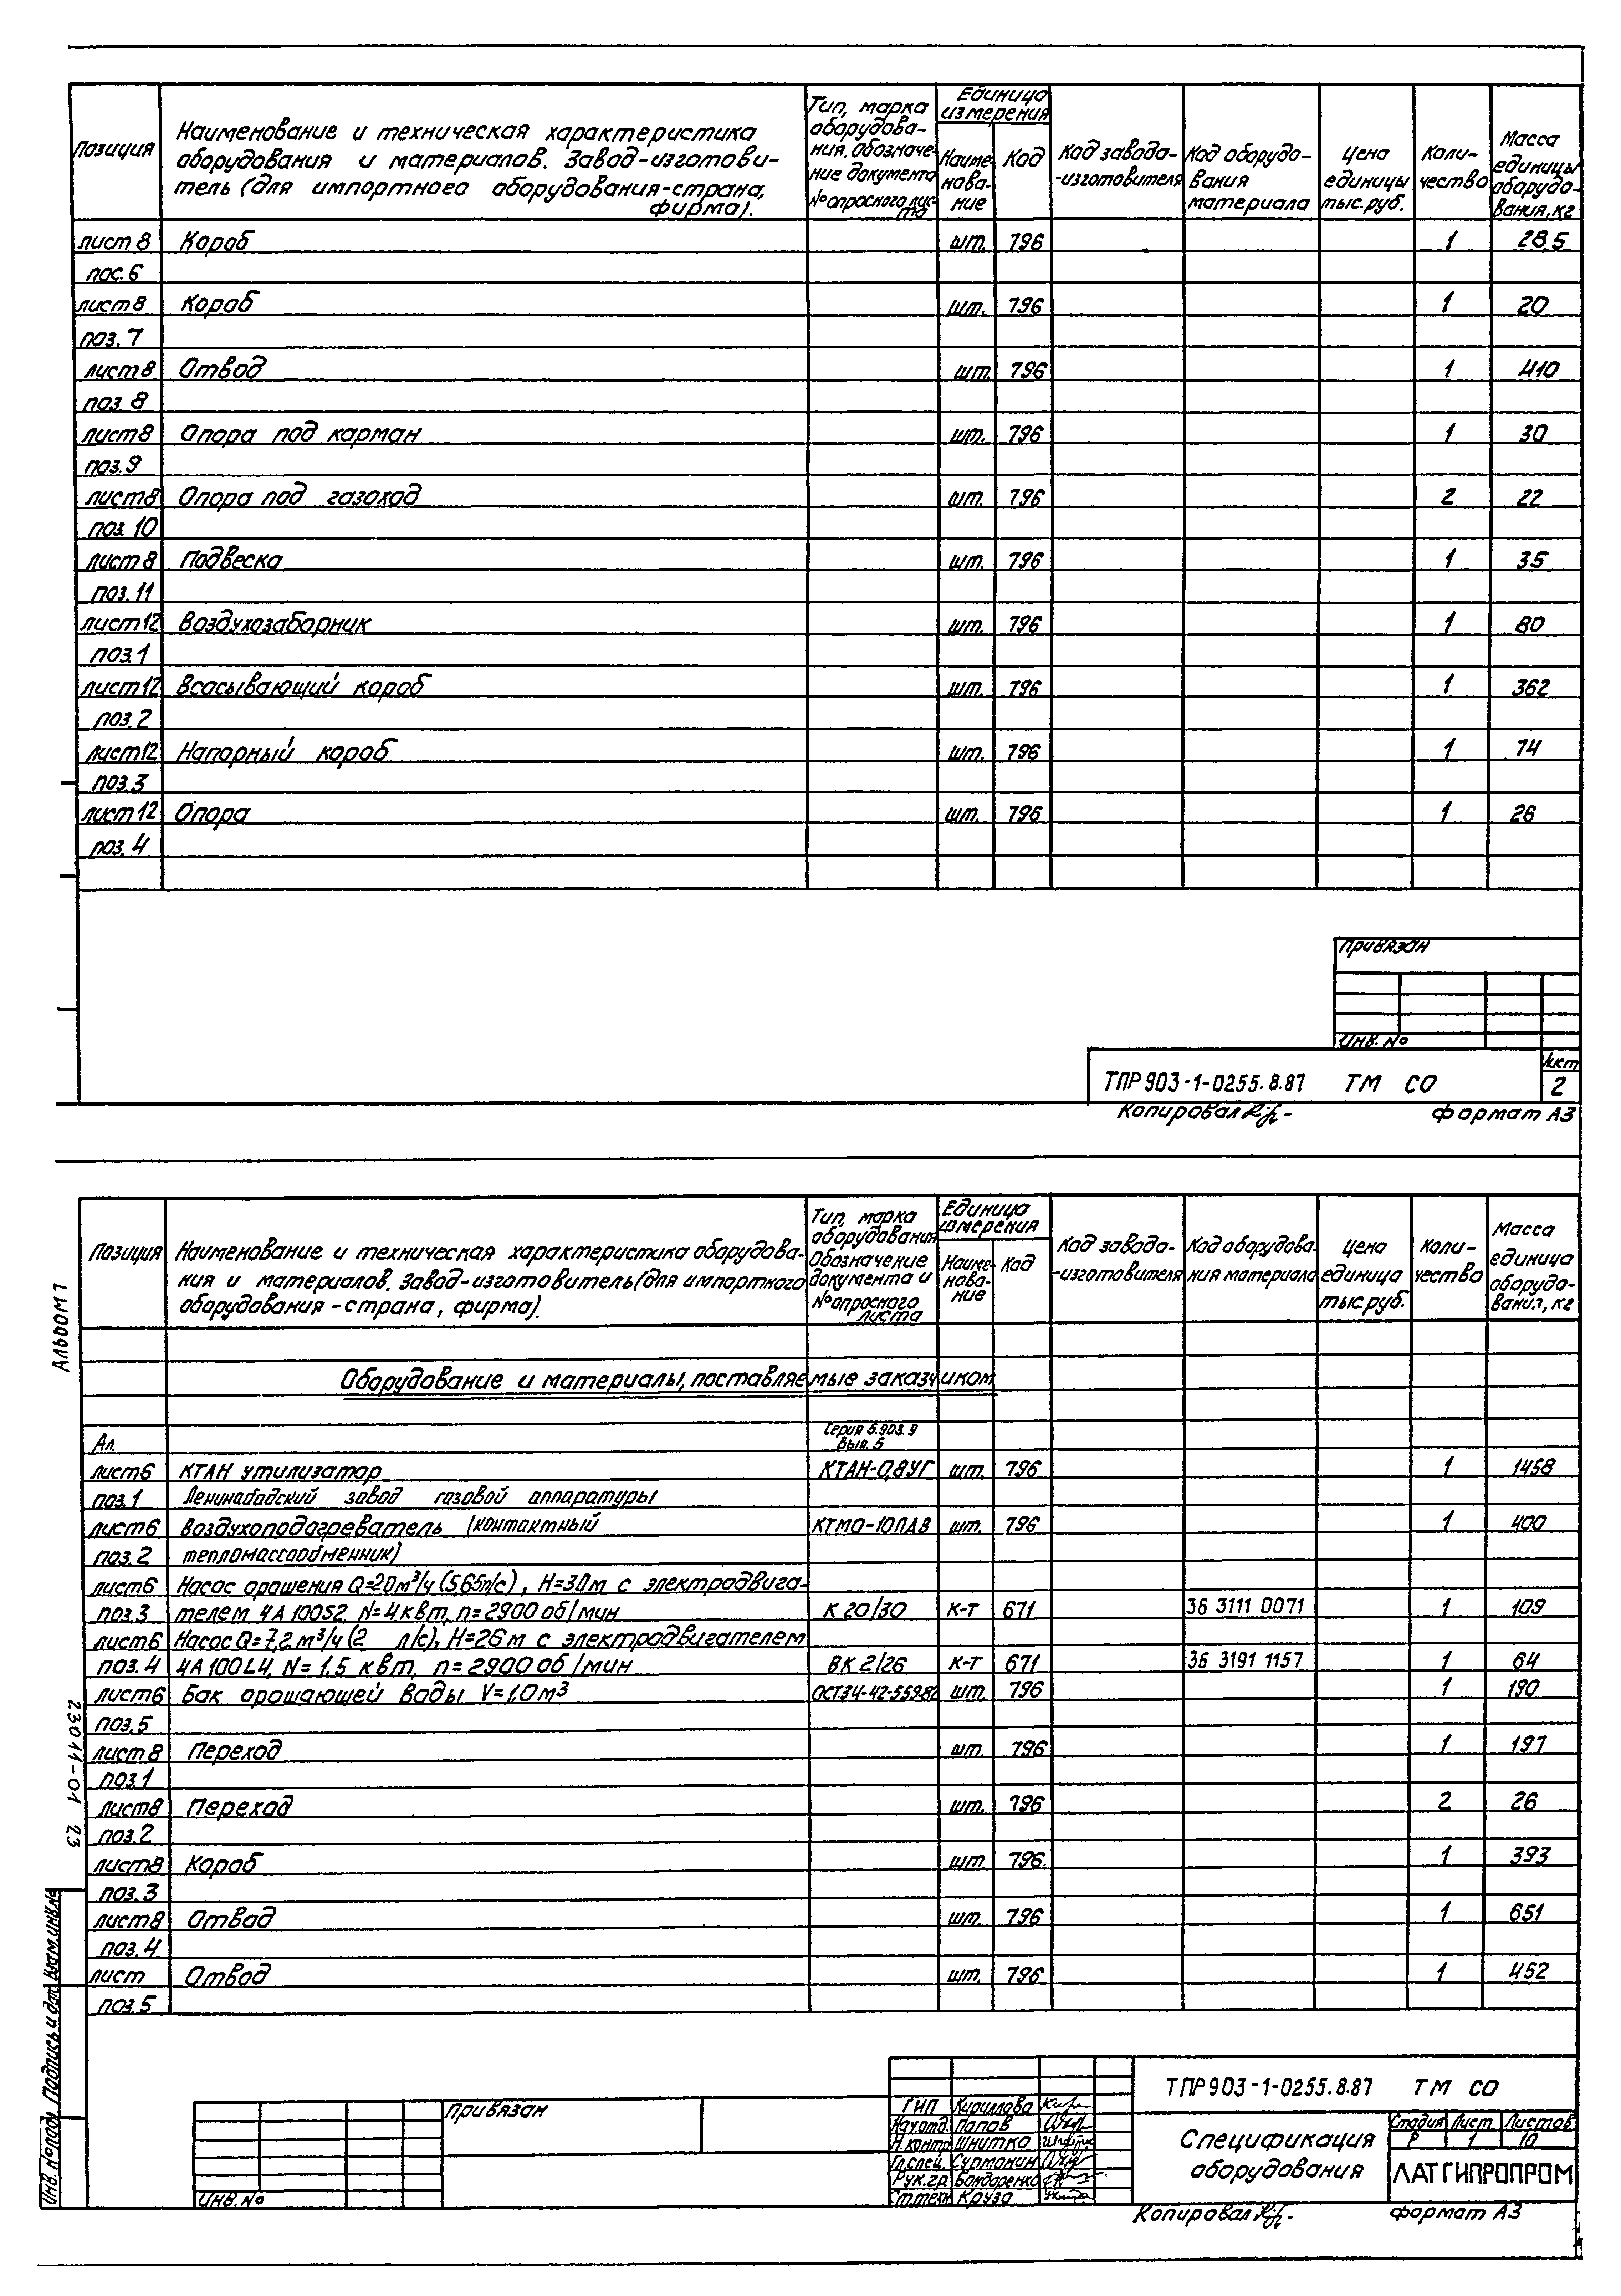 Позиция
Наименование и техническая характеристика
оборудования и материалов. Завод-изготови-
тель (для импортного оборудования-страна,
фирма).
Тип, марка
оборудова-
ния. Обозначе-
ние документа
№ опросного лис-
та
Единица
измерения
Наиме-
нова-
ние
Код
Код завода-
-изготовителя
Код оборудо-
вания
материала
Цена
единицы
тыс.руб.
Коли-
чество
Масса
единицы
оборудо-
вания, кг
лист 8 Короб шт. 796 1 28,5
пос. 6
лист 8 Короб шт. 796 1 20
поз. 7
лист 8 Отвод шт. 796 1 410
поз. 8
лист 8 Опора под карман шт. 796 1 30
поз. 9
лист 8 Опора под газоход шт. 796 2 22
поз. 10
лист 8 Подвеска шт. 796 1 35
поз. 11
лист 12 Воздухозаборник шт. 796 1 80
поз. 1
лист 12 Всасывающий короб шт. 796 1 362
поз. 2
лист 12 Напорный короб шт. 796 1 74
поз. 3
лист 12 Опора шт. 796 1 26
поз. 4
Привязан
Инв. №
ТПР 903-1-0255.8.87 ТМ СО
Лист
2
Копировал
Формат А3
Альбом 1
23011-01 23
Позиция
Наименование и техническая характеристика оборудова-
ния и материалов. Завод-изготовитель (для импортного
оборудования - страна, фирма).
Тип, марка
оборудования
Обозначение
документа и
№ опросного
листа
Единица
измерения
Наиме-
нова-
ние
Код
Код завода-
-изготовителя
Код оборудова-
ния материала
Цена
единица
тыс.руб.
Коли-
чество
Масса
единица
оборудо-
вания, кг
Оборудование и материалы, поставляемые заказчиком
Серия 5.903.9
Ал. Вып. 5
лист 6 КТАН утилизатор КТАН-0,8УГ шт. 796 1 1458
поз. 1 Ленинабадский завод газовой аппаратуры
лист 6 Воздухоподогреватель (контактный КТМО-10ПДВ шт. 796 1 400
поз. 2 тепломассообменник)
лист 6 Насос орошения Q=20м³/ч (5,65л/с), Н=30м с электродвига-
поз. 3 телем 4А100S2, N=4квт, n=2900 об/мин К 20/30 К-т 671 36 3111 0071 1 109
лист 6 Насос Q=7,2 м³/ч (2 л/с), Н=26 м с электродвигателем
поз. 4 4А100L4, N=1,5 квт, n=2900 об/мин ВК 2/26 К-т 671 36 3191 1157 1 64
лист 6 Бак орошающей воды V=1,0м³ ОСТ34-42-559-82 шт. 796 1 190
поз. 5
лист 8 Переход шт. 796 1 197
поз. 1
лист 8 Переход шт. 796 2 26
поз. 2
лист 8 Короб шт. 796. 1 393
поз. 3
лист 8 Отвод шт. 796 1 651
поз. 4
лист Отвод шт. 796 1 452
поз. 5
Инв. № подл. Подпись и дата Взам. инв. №
Привязан
Инв. №
ГИП Кириллова
Нач.отд. Попов
Н.контр. Шнитко
Гл.спец. Сурмонин
Рук.гр. Бондаренко
Ст.техн. Круза
ТПР 903-1-0255.8.87 ТМ СО
Спецификация
оборудования
Стадия Лист Листов
Р 1 10
ЛАТГИПРОПРОМ
Копировал
Формат А3